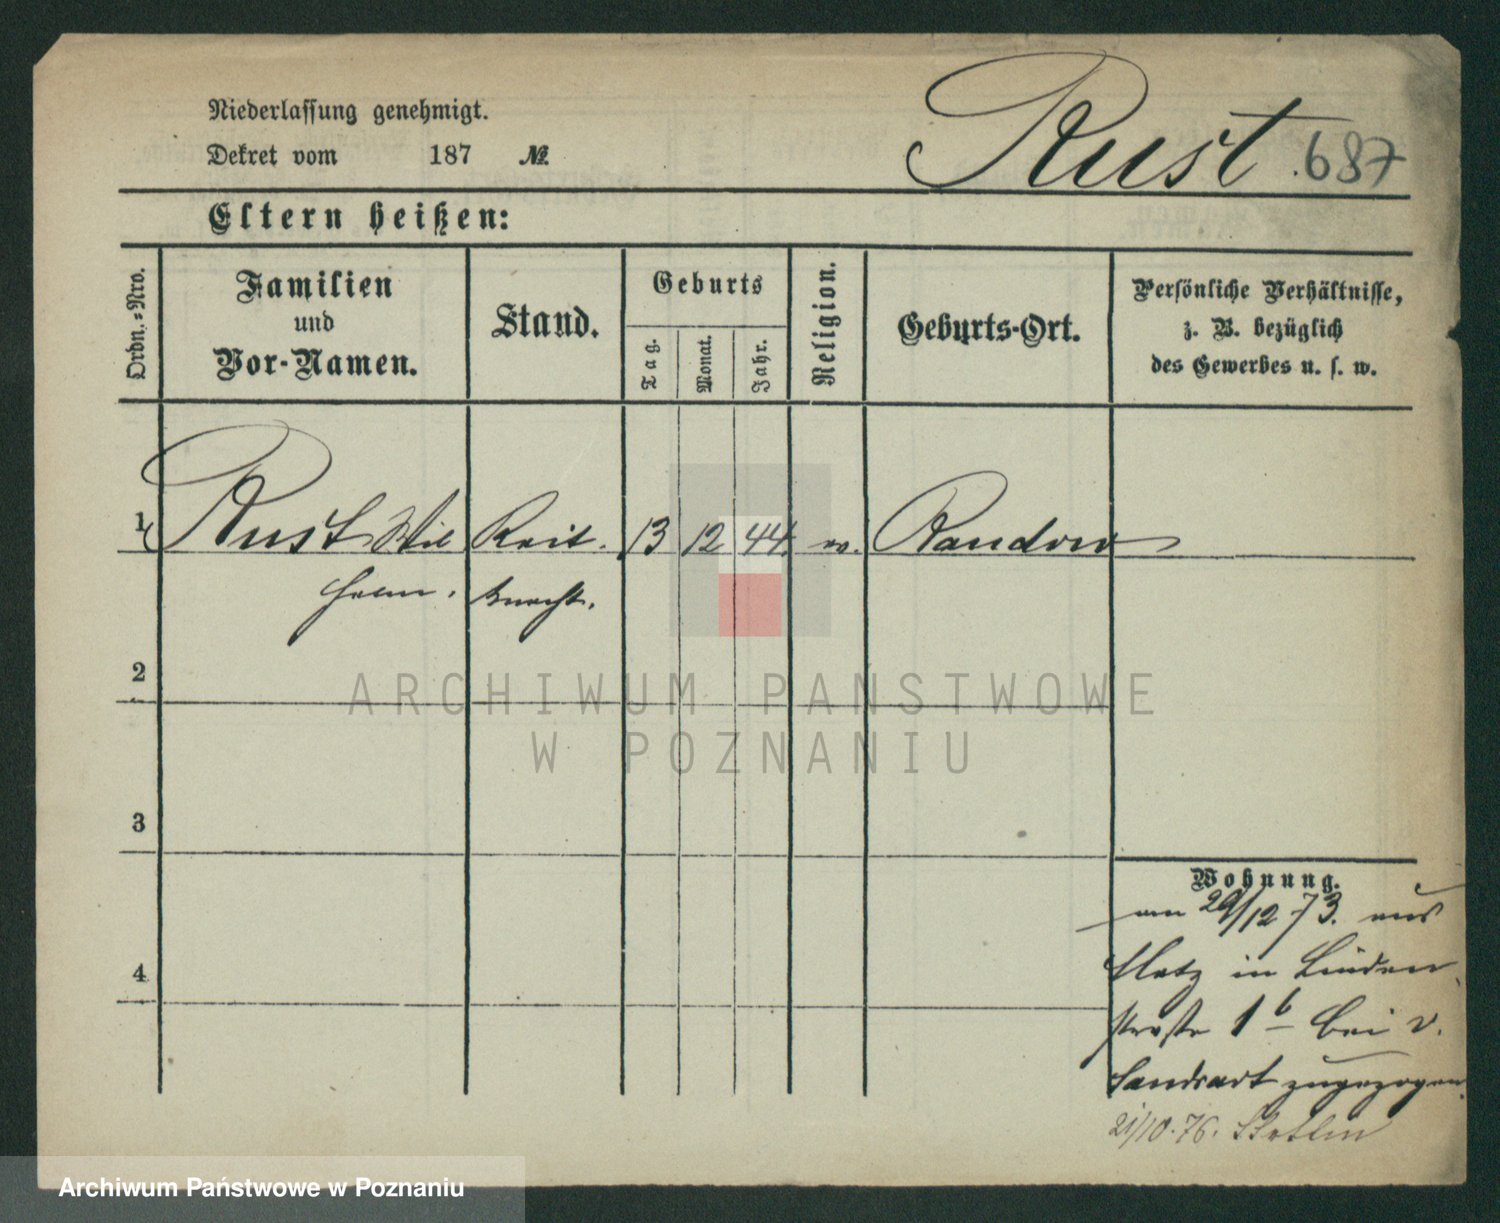 Niederlassung genehmigt.
Dekret vom 187 №
Rust 687
Eltern heißen:
Ordn.=Nro.
Familien
und
Vor-Namen.
Stand.
Geburts
Tag.
Monat.
Jahr.
Religion.
Geburts-Ort.
Persönliche Verhältnisse,
z. B. bezüglich
des Gewerbes u. s. w.
1 Rust Wil Reit. 13 12 44. ev. Randow
helm. knecht.
2
3
4
Wohnung.
am 29/12 73. aus
in Linden
straße 1 b bei v.
Sandrart zugezogen.
21/10. 76. Stettin
ARCHIWUM PAŃSTWOWE
W POZNANIU
Archiwum Państwowe w Poznaniu